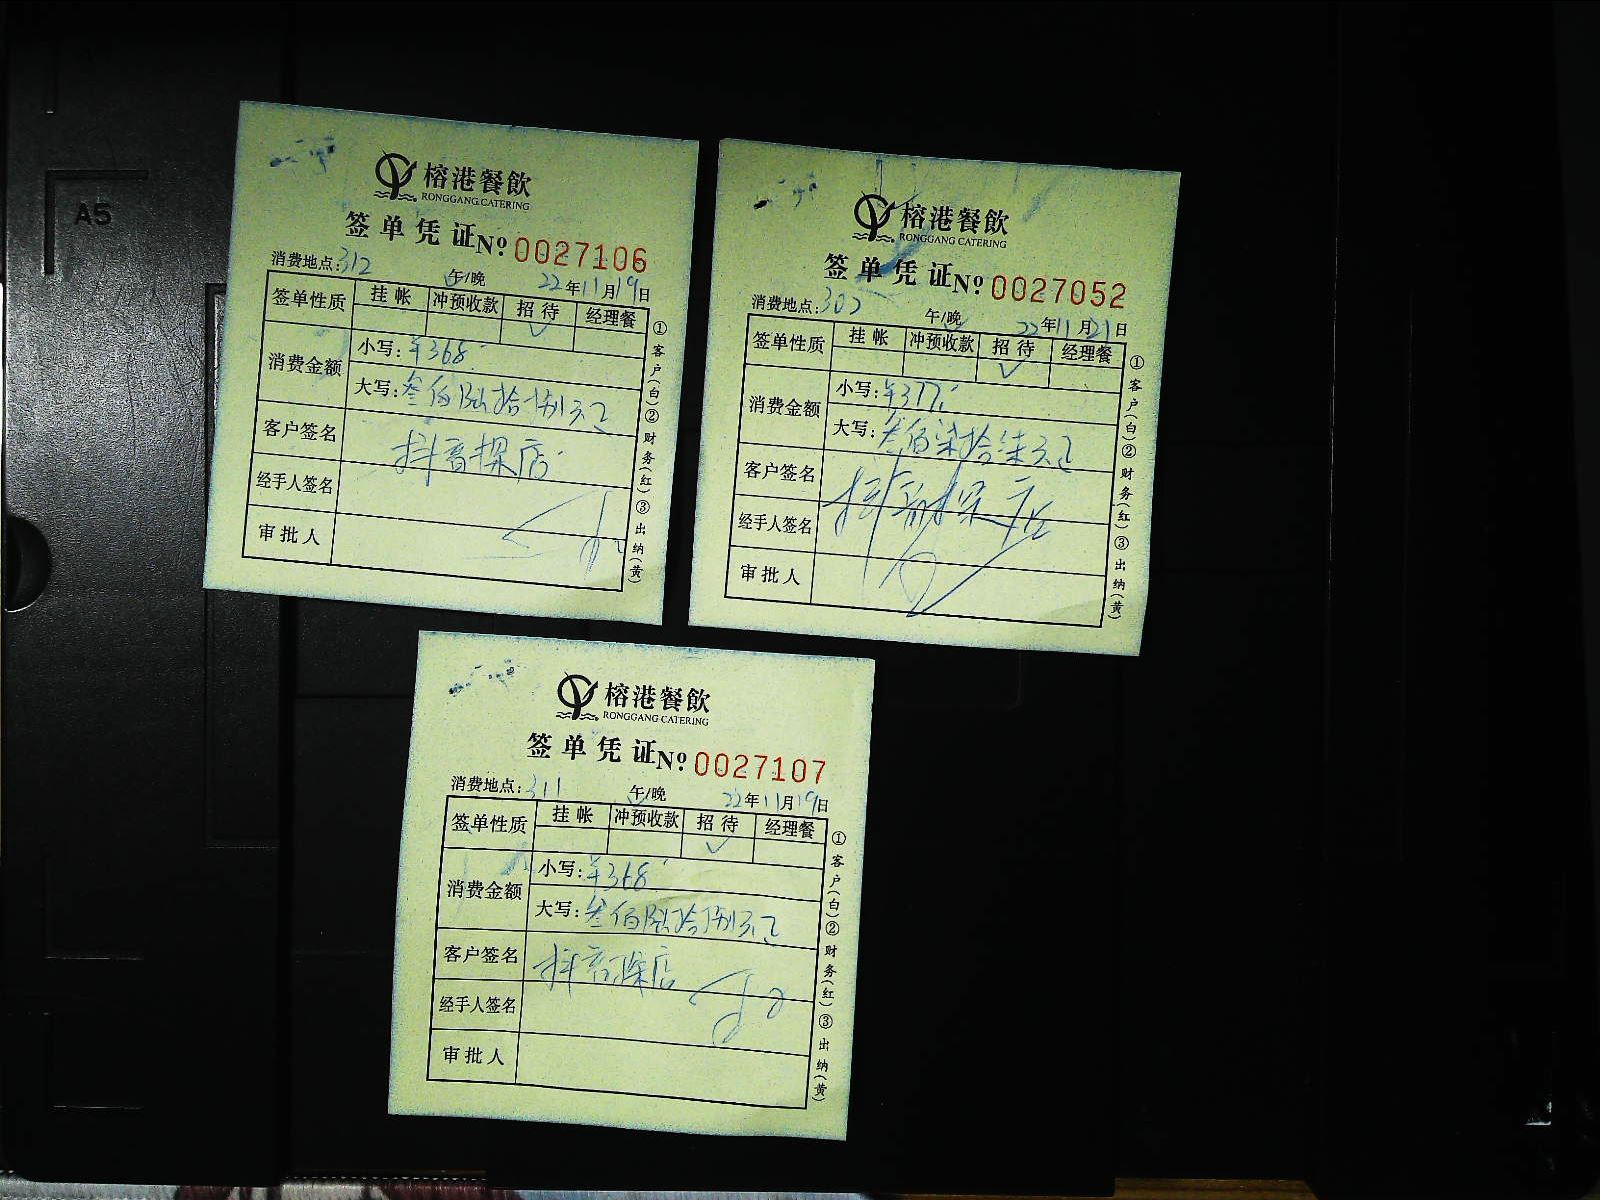 A5
榕港餐飲
RONGGANG CATERING
签单凭证 Nº 0027106
消费地点: 312 午/晚 22年11月19日
签单性质 挂帐 冲预收款 招待 经理餐
✓
消费金额 小写: ¥368
大写: 叁佰陆拾捌元正
客户签名 抖音探店
经手人签名
审批人
①客户(白)②财务(红)③出纳(黄)
榕港餐飲
RONGGANG CATERING
签单凭证 Nº 0027052
消费地点: 302 午/晚 22年11月21日
签单性质 挂帐 冲预收款 招待 经理餐
✓
消费金额 小写: ¥377
大写: 叁佰柒拾柒元正
客户签名 抖音探店
经手人签名
审批人
①客户(白)②财务(红)③出纳(黄)
榕港餐飲
RONGGANG CATERING
签单凭证 Nº 0027107
消费地点: 311 午/晚 22年11月19日
签单性质 挂帐 冲预收款 招待 经理餐
✓
消费金额 小写: ¥368
大写: 叁佰陆拾捌元正
客户签名 抖音探店
经手人签名
审批人
①客户(白)②财务(红)③出纳(黄)